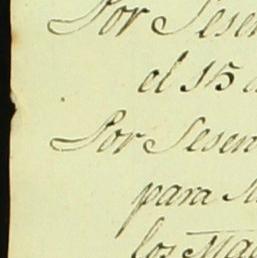 Por Sesen
el 15 d
Por Sesen
para M
los Ma